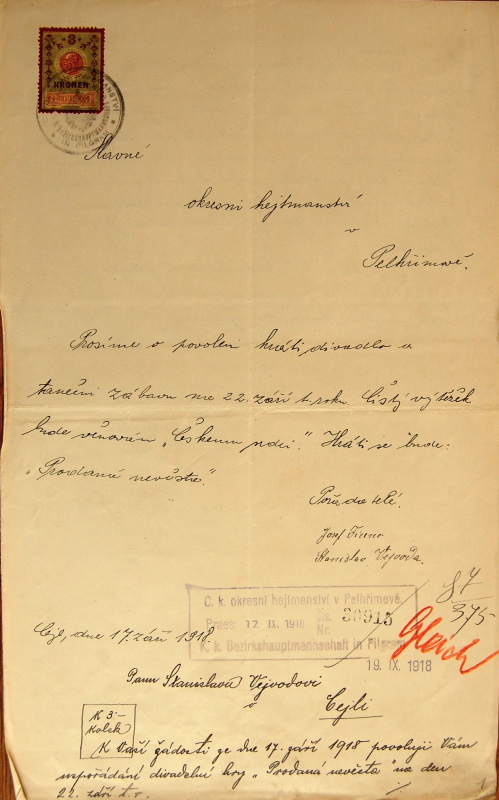 3
KRONEN
Slavné
okresní hejtmanství
v
Pelhřimově.
Prosíme o povolení hráti divadlo a
taneční zábavu na 22. září t. roku. Čistý výtěžek
bude věnován „Českému srdci." Hráti se bude:
„Prodaná nevěsta."
Pořadatelé.
Josef
Stanislav Vejvoda.
87
375
C. k. okresní hejtmanství v Pelhřimově.
Praes: 17. IX. 1918 Čís. Nr. 30915
K. k. Bezirkshauptmannschaft in Pilgram
Cejl, dne 17. září 1918.
Gleich
19. IX. 1918
Panu Stanislavu Vejvodovi
v
Cejli
K 3:-
Kolek
K Vaší žádosti ze dne 17. září 1918 povoluji Vám
uspořádání divadelní hry „Prodaná nevěsta" na den
22. září t. r.